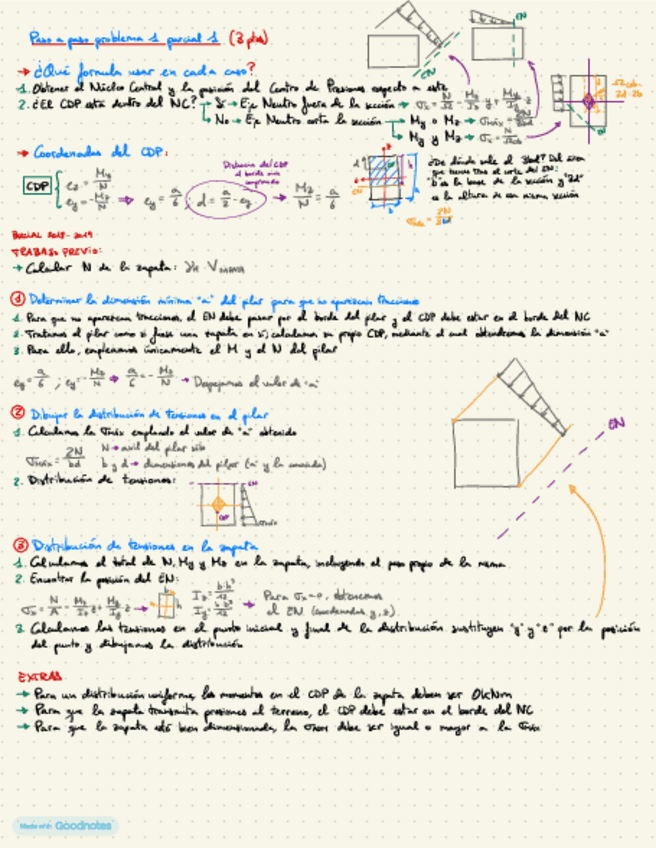 Paso a paso problema 1 parcial 1 (3 ptos)
→ ¿Qué formula usar en cada caso?
1. Obtener el Núcleo Central y la posición del Centro de Presiones respecto a este
2. ¿El CDP está dentro del NC? → Sí → Eje Neutro fuera de la sección → σx = N/A - Mz/Iz y + My/Iy z
No → Eje Neutro corta la sección → My o Mz → σmáx =
My y Mz → σx =
EN
EN
→ Coordenadas del CDP:
Distancia del CDP al borde más comprimido
CDP { ez = My/N
ey = -Mz/N ⇒ ey = a/6 ; d = a/2 - ey → Mz/N = a/6
¿De dónde sale el 3bd? Del área
que tienes tras el corte del EN:
"b" es la base de la sección y "3d"
es la altura de esa misma sección
σmáx = 2N/3bd
PARCIAL 2018-2019
TRABAJO PREVIO:
→ Calcular N de la zapata:
① Determinar la dimensión mínima "a" del pilar para que no aparezcan tracciones
1. Para que no aparezcan tracciones, el EN debe pasar por el borde del pilar y el CDP debe estar en el borde del NC
2. Tratamos el pilar como si fuese una zapata en sí; calculamos su propio CDP, mediante el cual obtendremos la dimensión "a"
3. Para ello, empleamos únicamente el M y el N del pilar
ey = a/6 ; ey = -Mz/N ⇒ a/6 = -Mz/N → Despejamos el valor de "a"
② Dibujar la distribución de tensiones en el pilar
1. Calculamos la σmáx empleando el valor de "a" obtenido
σmáx = 2N/bd N → axil del pilar sólo
b y d → dimensiones del pilar ("a" y la conocida)
2. Distribución de tensiones:
EN
CDP
σmáx
EN
③ Distribución de tensiones en la zapata
1. Calculamos el total de N, My y Mz en la zapata, incluyendo el peso propio de la misma
2. Encontrar la posición del EN:
σx = N/A - Mz/Iz y + My/Iy z → b h Iz = b·h³/12 → Para σx=0, obtenemos
Iy = h·b³/12 el EN (coordenadas y, z)
3. Calculamos las tensiones en el punto inicial y final de la distribución sustituyen "y" y "z" por la posición
del punto y dibujamos la distribución
EXTRAS
→ Para un distribución uniforme, los momentos en el CDP de la zapata deben ser 0kNm
→ Para que la zapata transmita presiones al terreno, el CDP debe estar en el borde del NC
→ Para que la zapata esté bien dimensionada, la σadm debe ser igual o mayor a la σmáx
Made with Goodnotes